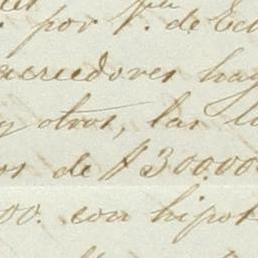 por P. de Ec
acreedores hay
y otros, las l
os de $30000
00. con hipot